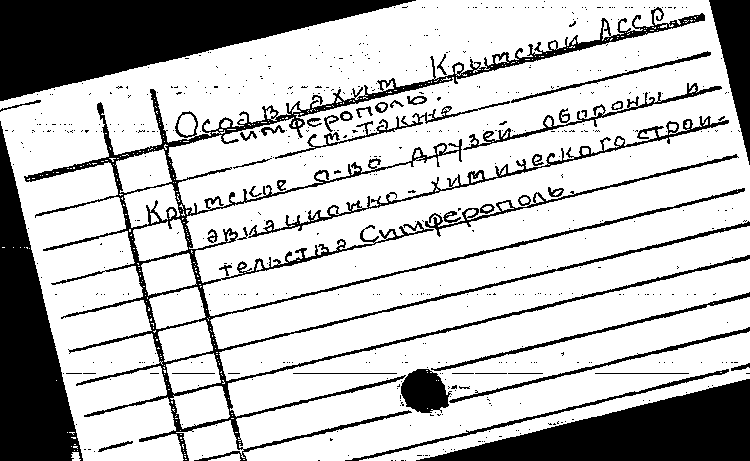 Осоавиахим Крымской АССР
Симферополь.
см. также
Крымское о-во друзей обороны и
авиационно-химического строи-
тельства Симферополь.